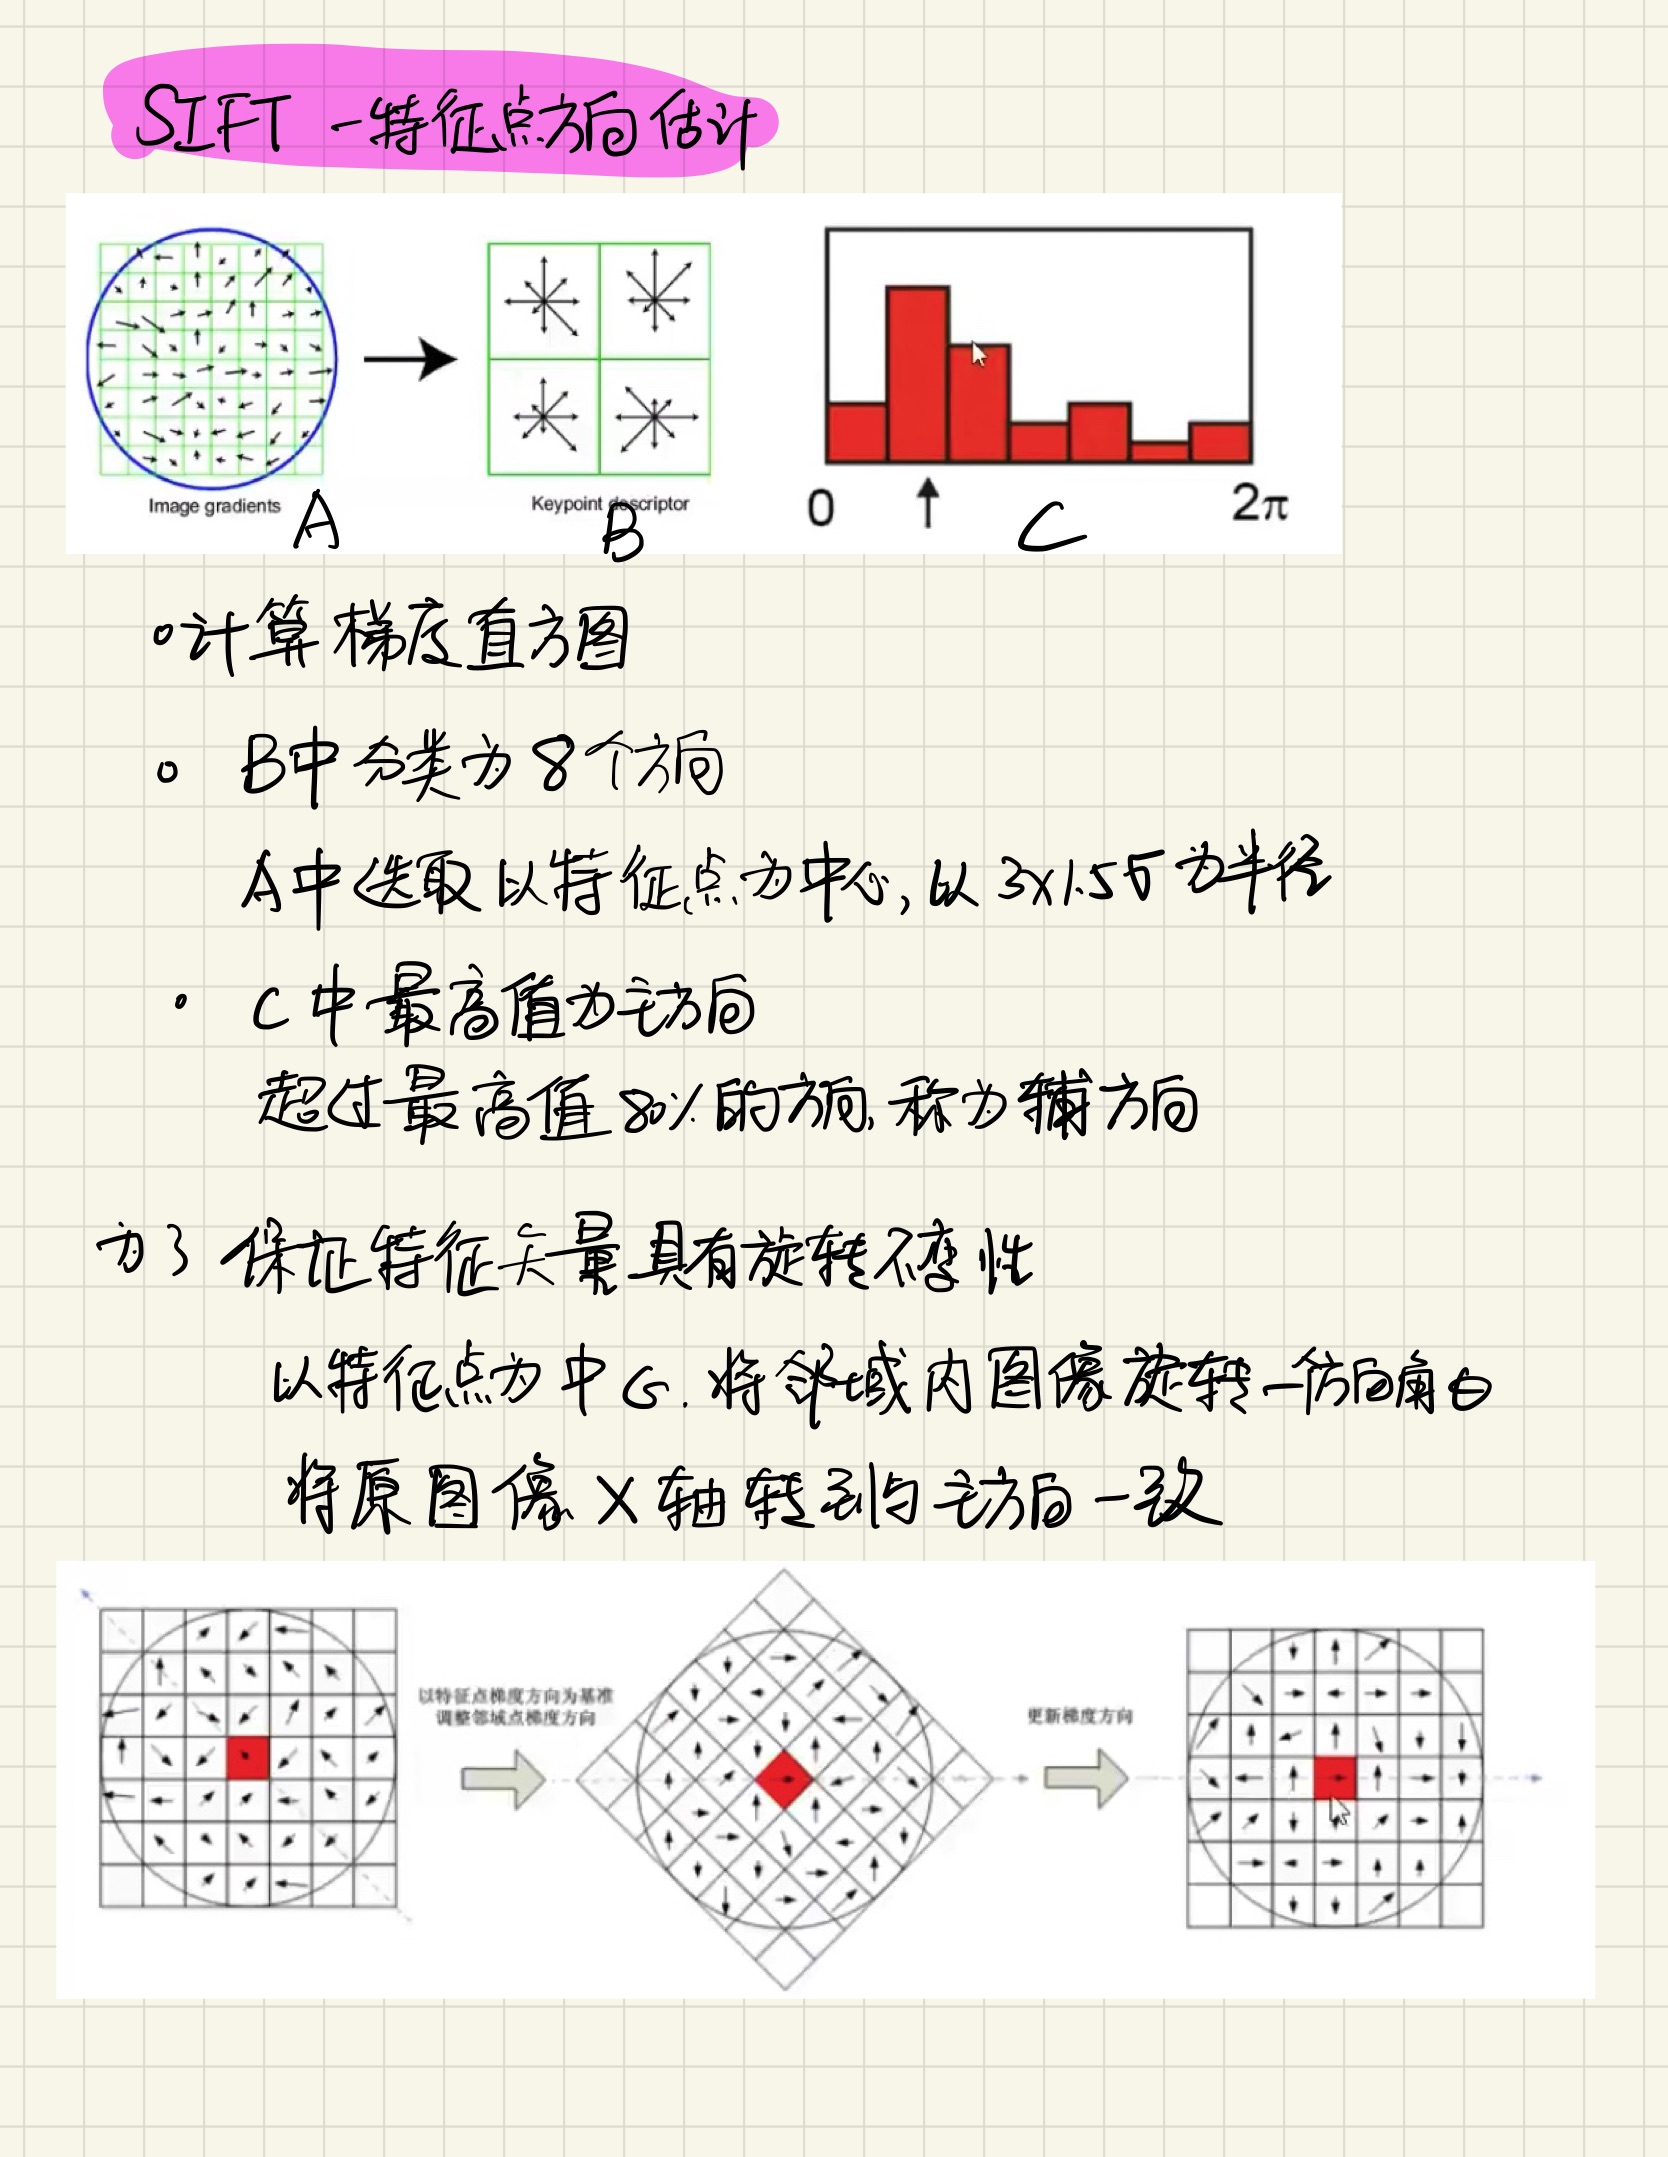 SIFT -特征点方向估计
Image gradients
Keypoint descriptor
0
2π
A
B
C
计算梯度直方图
B中分类为8个方向
A中选取以特征点为中心,以3×1.5σ为半径
C中最高值为主方向
超过最高值80%的方向,称为辅方向
为了保证特征矢量具有旋转不变性
以特征点为中心.将邻域内图像旋转一个方向角θ
将原图像X轴转到与主方向一致
以特征点梯度方向为基准
调整邻域点梯度方向
更新梯度方向